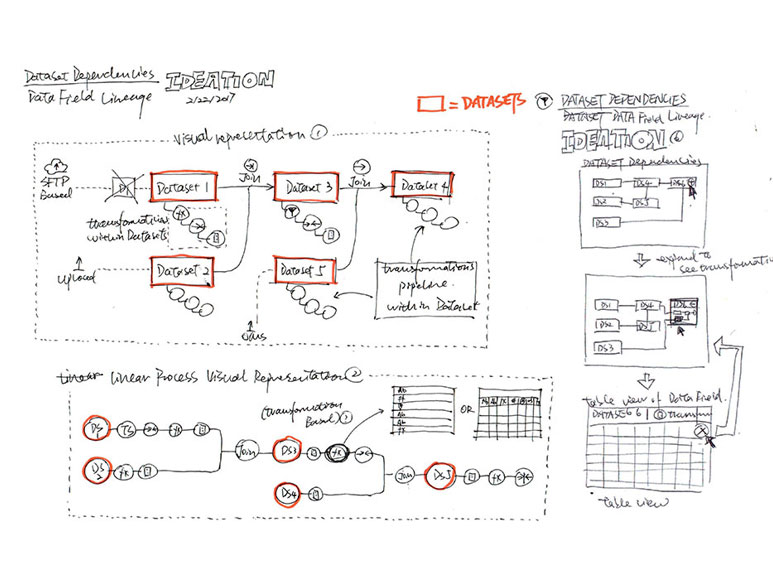 Dataset Dependencies
Data Field Lineage
IDEATION
2/22/2017
= DATASETS
DATASET DEPENDENCIES
DATASET DATA Field Lineage.
IDEATION
Dataset Dependencies
Visual representation 1
SFTP
Based
Dataset 1
Join
Dataset 3
Join
Dataset 4
transformation
within Datasets
fx
uploaded
Dataset 2
Dataset 5
transformations
pipeline
within Dataset
DS1
DS4
DS2
DS3
expand to
see transformation
DS1
DS4
DS2
DS3
Linear Linear Process Visual Representation 2
(transformation
Based)
OR
DS
TS
fx
Join
DS3
fx
DS
2
fx
DS4
Join
DS5
fx
table view of Data Field.
DATASET 6
table view